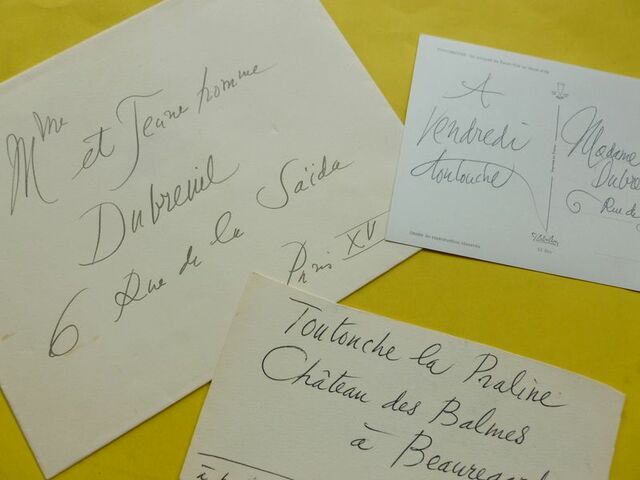 Mme et Jeune homme
Dubreuil
6 Rue de la Saïda
Paris XV
A
Vendredi
toutouche
Madame
Dubre
6 Rue de
Toutouche la Praline
Château des Balmes
à Beauregard